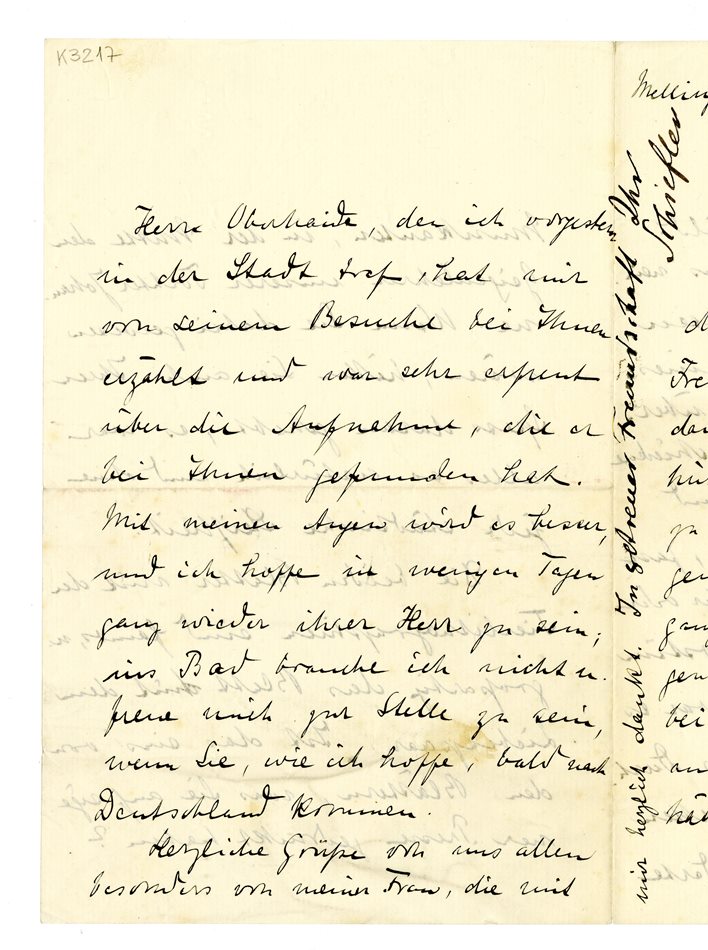 K3217
Herrn Oberheide, den ich vorgestern
in der Stadt traf, hat mir
von seinem Besuche bei Ihnen
erzählt und war sehr erfreut
über die Aufnahme, die er
bei Ihnen gefunden hat.
Mit meinen Augen wird es besser,
und ich hoffe in wenigen Tagen
ganz wieder ihrer Herr zu sein;
ins Bad brauche ich nicht u.
freue mich zur Stelle zu sein,
wenn Sie, wie ich hoffe, bald nach
Deutschland kommen.
Herzliche Grüße von uns allen
besonders von meiner Frau, die mit
mir herzlich dankt. In getreuer Freundschaft Ihr
Schiefler